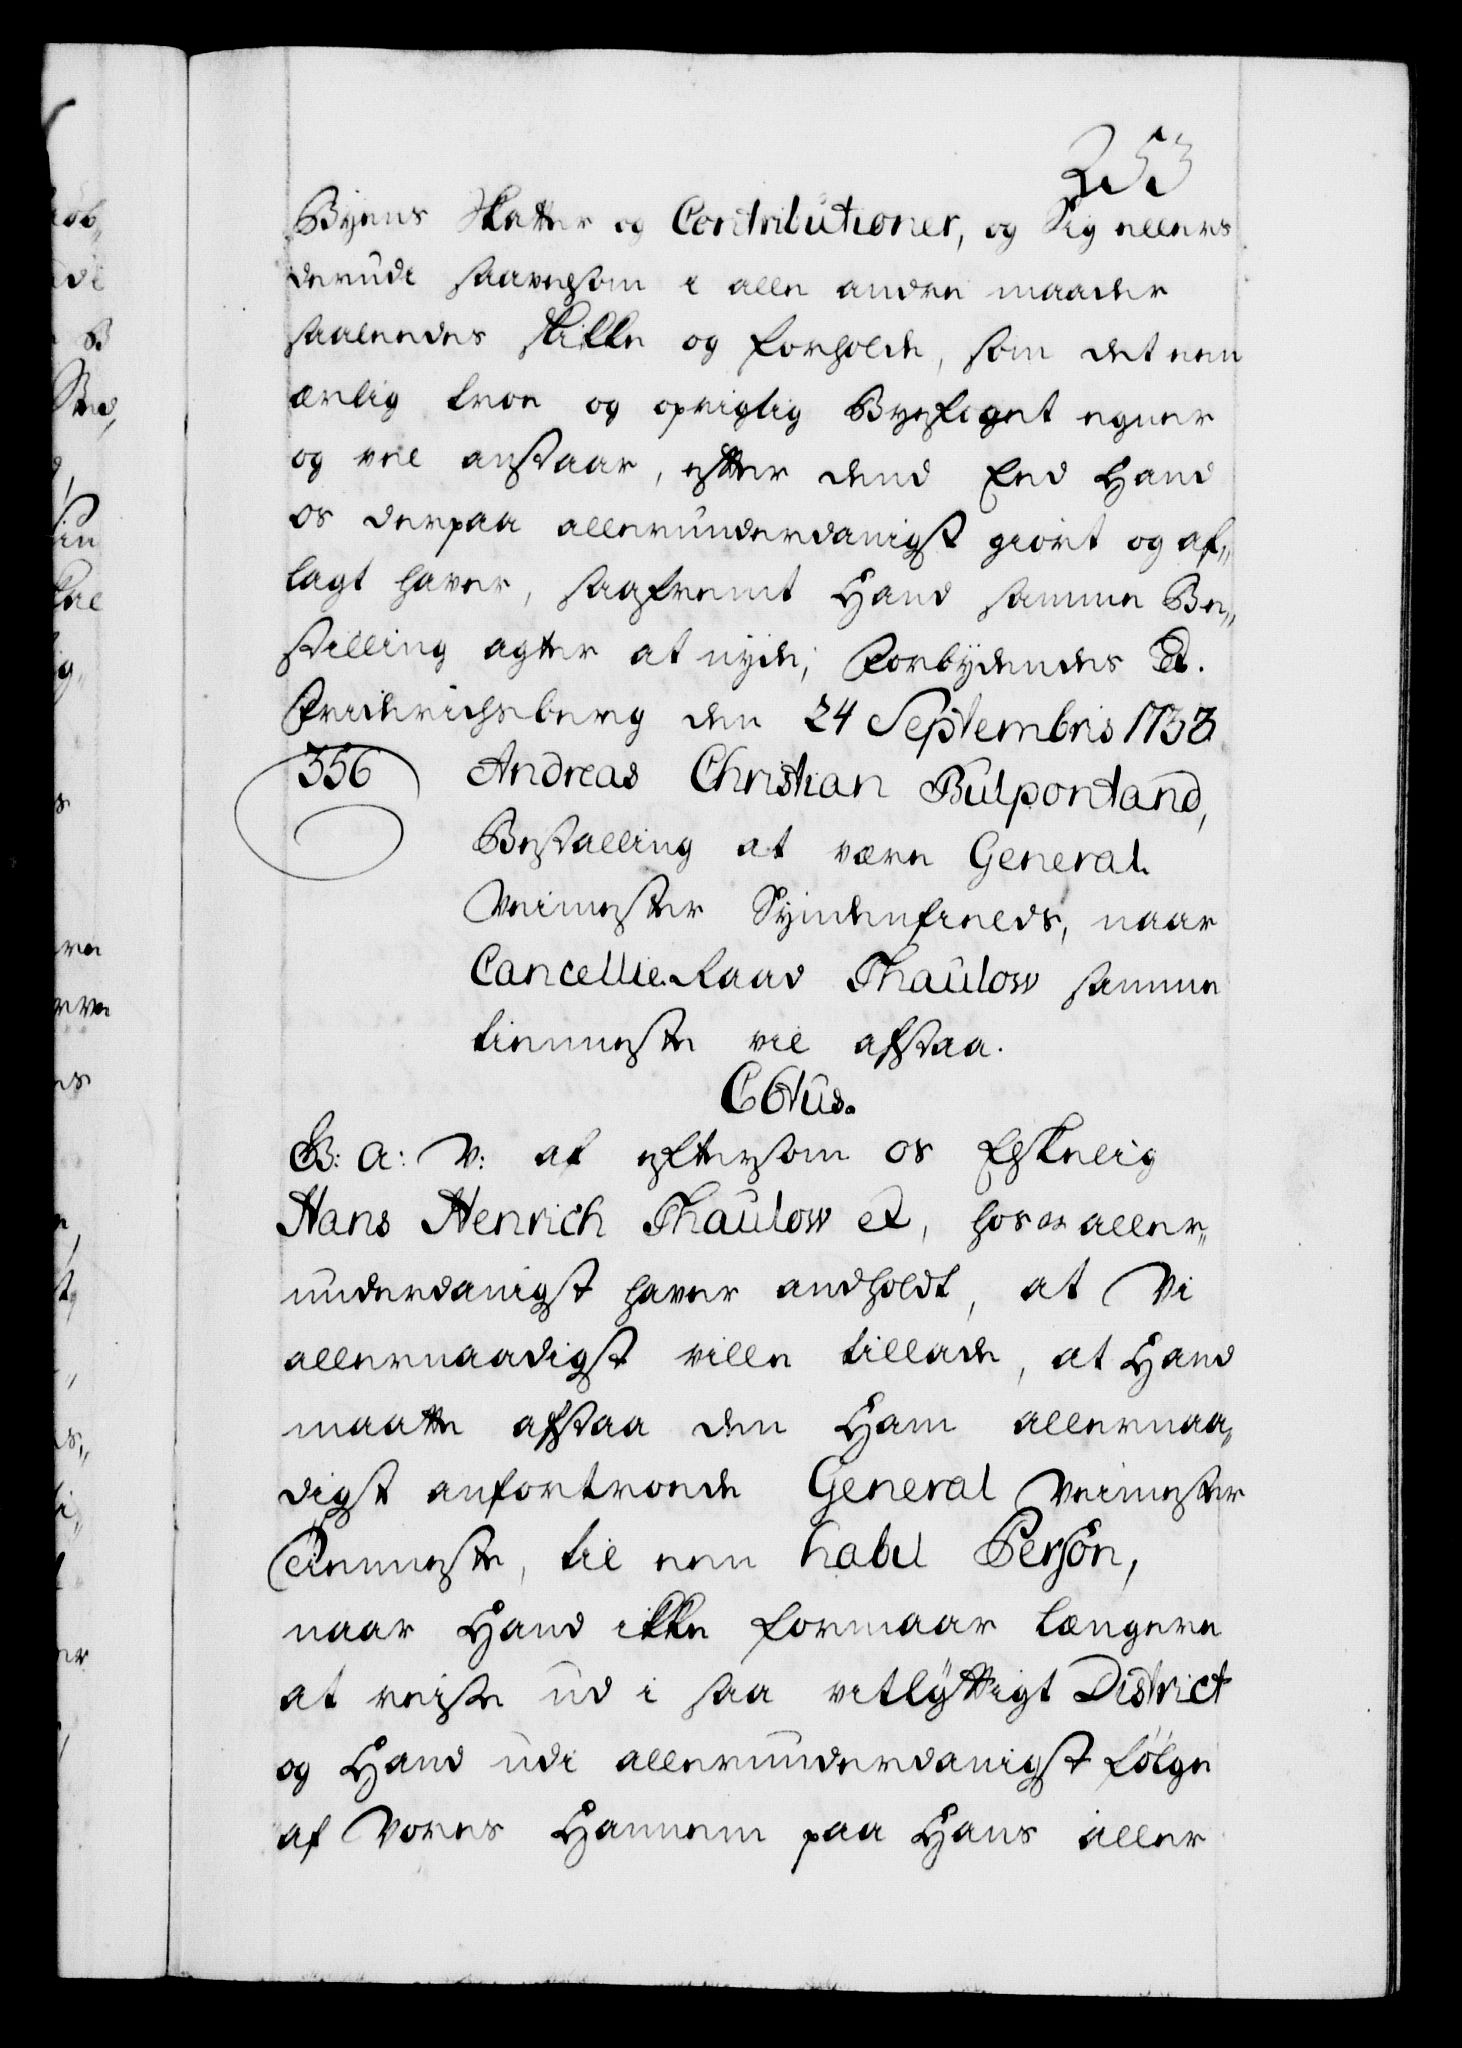 253
Byens Skatter og Contributioner, og Sig ellers
derudi saavelsom i alle andre maader
saaledes skikke og forholde, som det een
ærlig troe og oprigtig Byefoget egner
og vel anstaar, efter dend Eed Hand
os derpaa allerunderdanigst giort og af„
lagt haver, saafremt Hand samme Be„
stilling agter at nyde; Forbydendes &.
Friderichsberg den 24 Septembris 1733
356 Andreas Christian Bulpontand,
Bestalling at være General.
Veimester Syndenfields, naar
Cancellie Raad Thaulow samme
tienneste vil afstaa.
C6tus.
G: A: V: at eftersom os Elskelig
Hans Henrich Thaulow &, hos os aller„
underdanigst haver andholdt, at Vi
allernaadigst ville tillade, at Hand
maatte afstaa den Ham allernaa„
digst anfortroede General Veimester
Tienneste, til een habil Person,
naar Hand ikke formaar længere
at reise ud i saa vitlyttigt District
og Hand udi allerunderdanigst følge
af Vores Hannem paa Hans aller